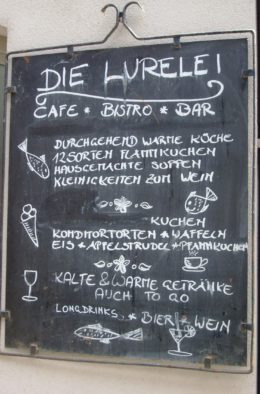 DIE LURELEI
CAFE * BISTRO * BAR
DURCHGEHEND WARME KÜCHE
12 SORTEN FLAMMKUCHEN
HAUSGEMACHTE SUPPEN
KLEINIGKEITEN ZUM WEIN
KUCHEN
KONDITORTORTEN * WAFFELN
EIS * APFELSTRUDEL * PFANNKUCHEN
KALTE & WARME GETRÄNKE
AUCH TO GO
LONGDRINKS * BIER * WEIN